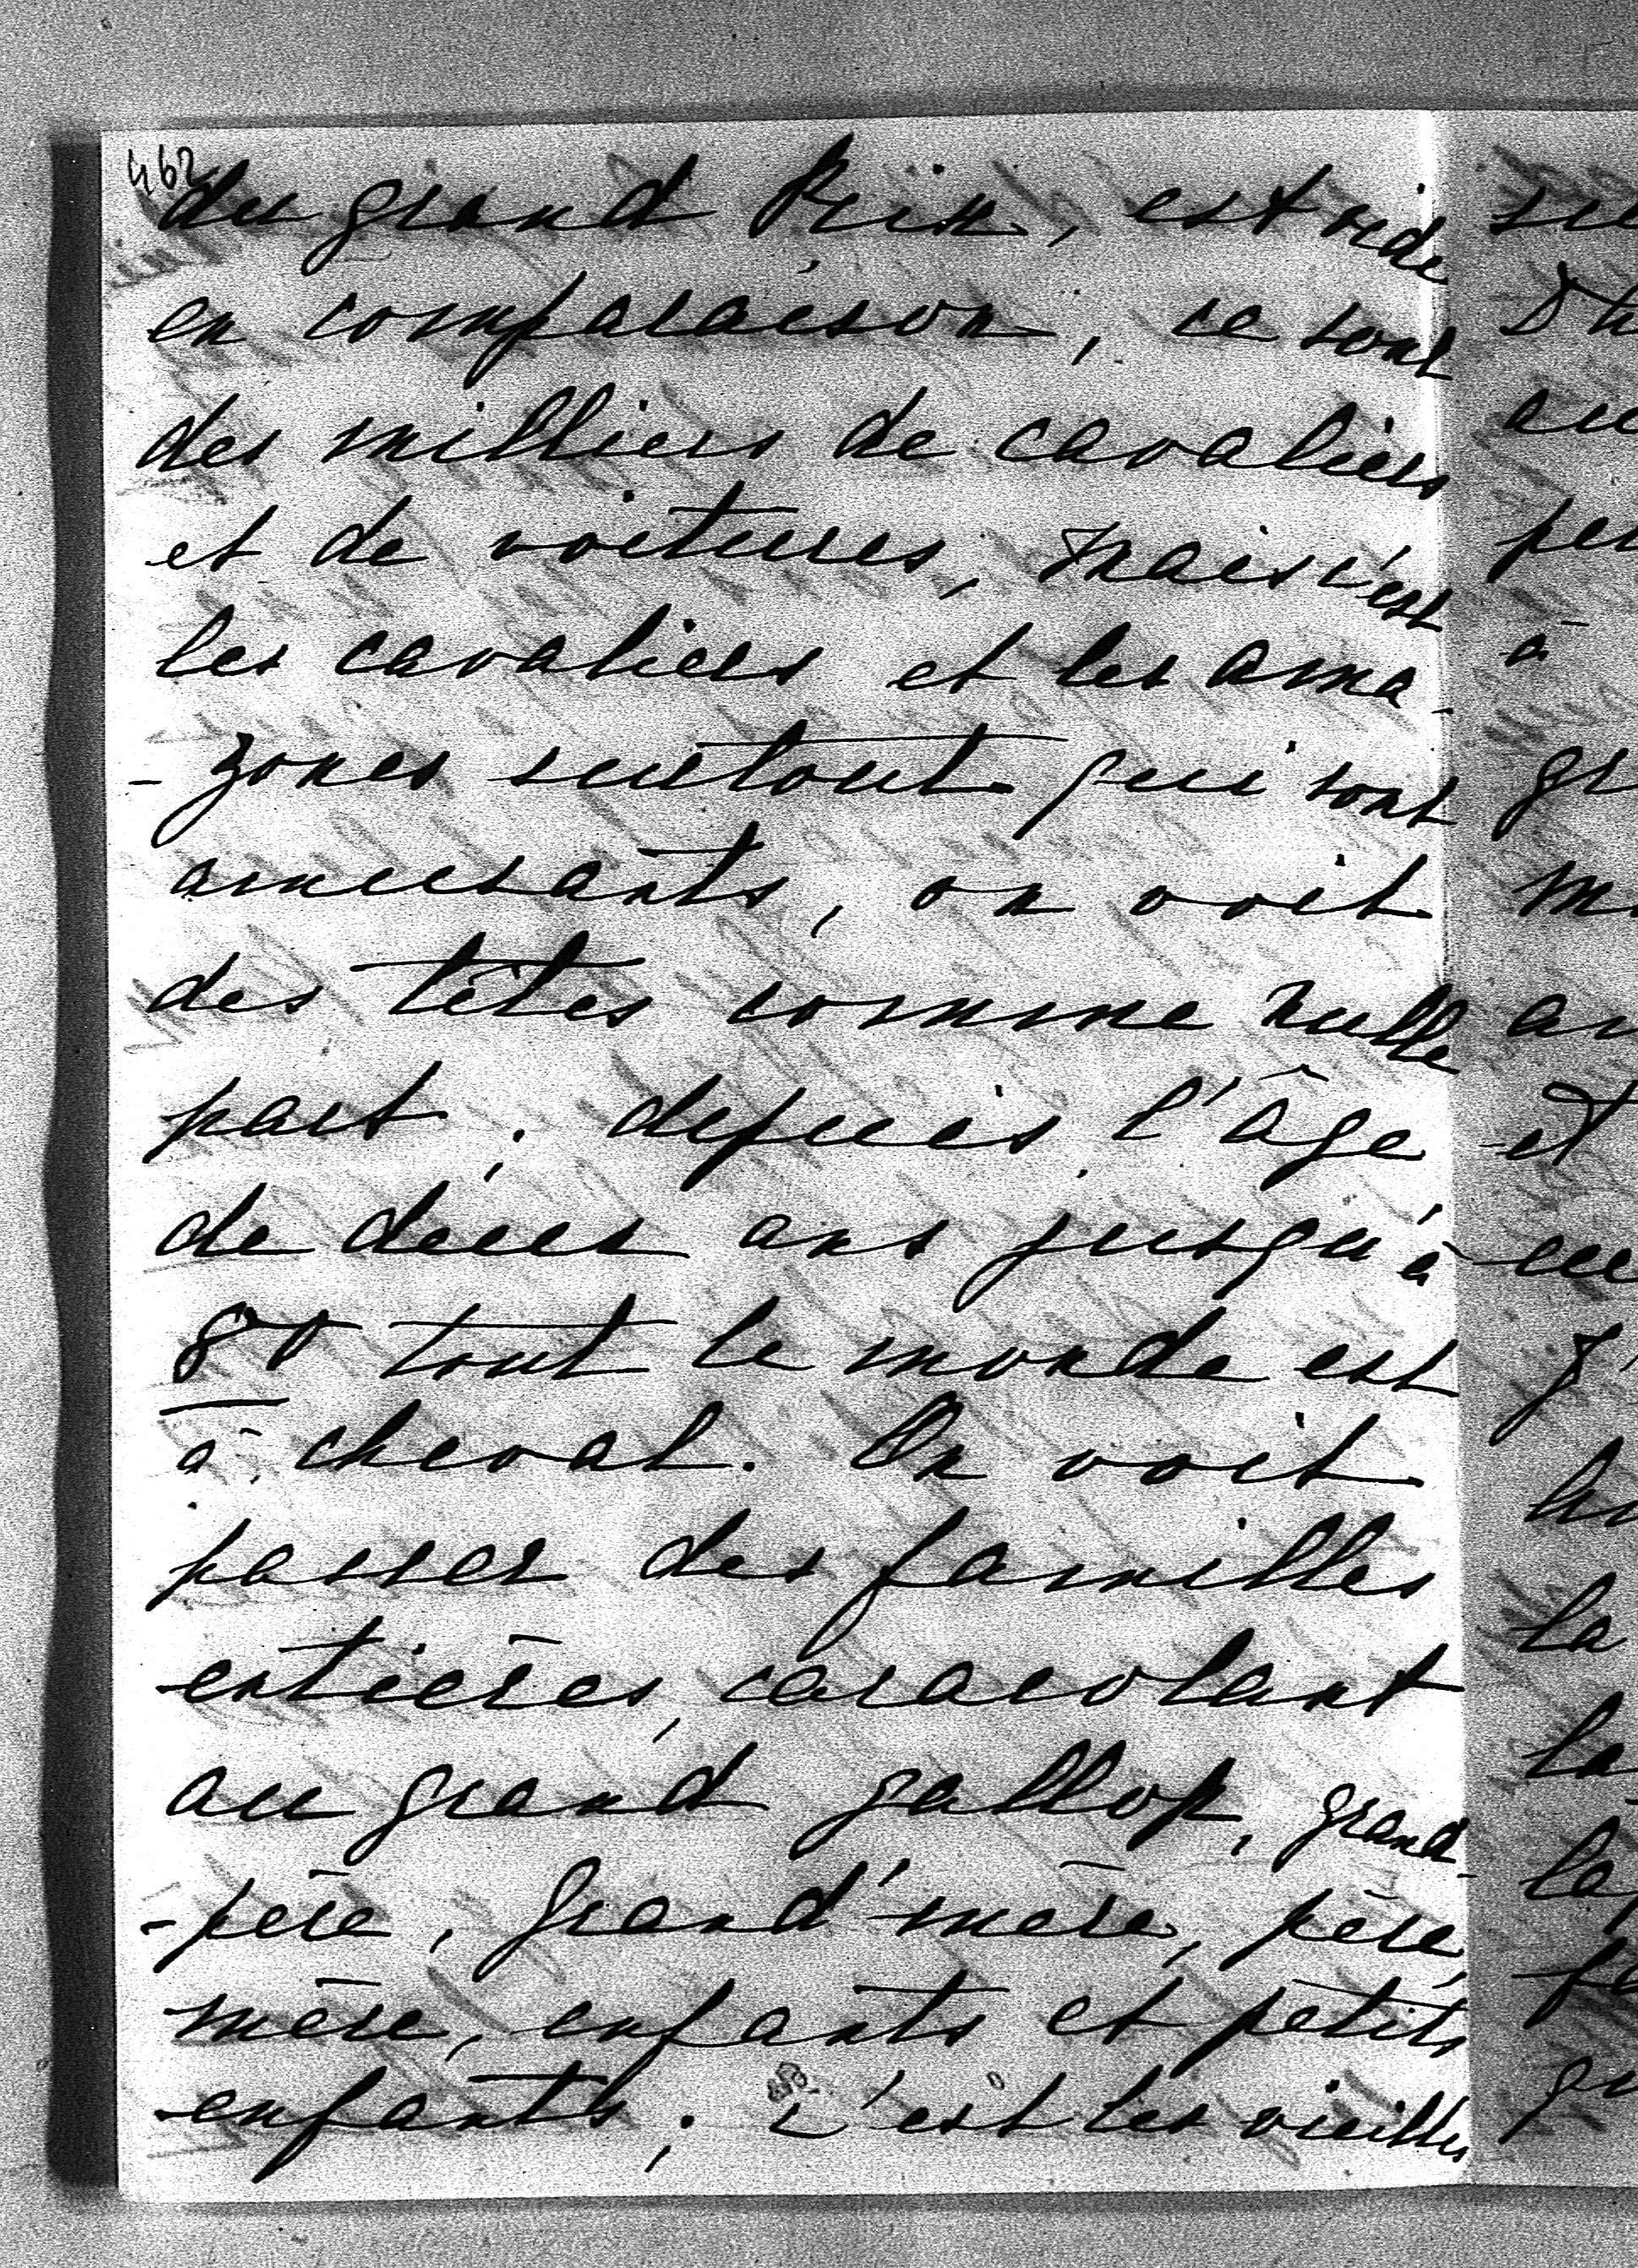 462
du grand Prix, est vide
en comparaison, ce sont
des milliers de cavaliers
et de voitures, mais c'est
les cavaliers et les ama-
-zones surtout qui sont
amusants, on voit
des têtes comme nulle
part; depuis l'âge
de deux ans jusqu'à
80 tout le monde est
à cheval. On voit
passer des familles
entières, caracolant
au grand gallop, grand-
-père, grand'mère, père,
mère, enfants et petits
enfants; c'est les vieilles